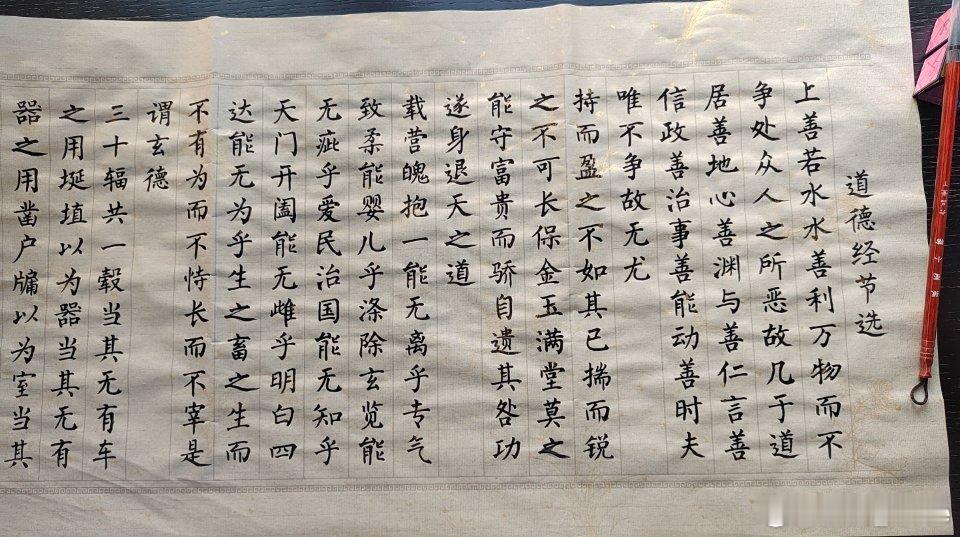 道德经节选
上善若水水善利万物而不
争处众人之所恶故几于道
居善地心善渊与善仁言善
信政善治事善能动善时夫
唯不争故无尤
持而盈之不如其已揣而锐
之不可长保金玉满堂莫之
能守富贵而骄自遗其咎功
遂身退天之道
载营魄抱一能无离乎专气
致柔能婴儿乎涤除玄览能
无疵乎爱民治国能无知乎
天门开阖能无雌乎明白四
达能无为乎生之畜之生而
不有为而不恃长而不宰是
谓玄德
三十辐共一毂当其无有车
之用埏埴以为器当其无有
器之用凿户牖以为室当其